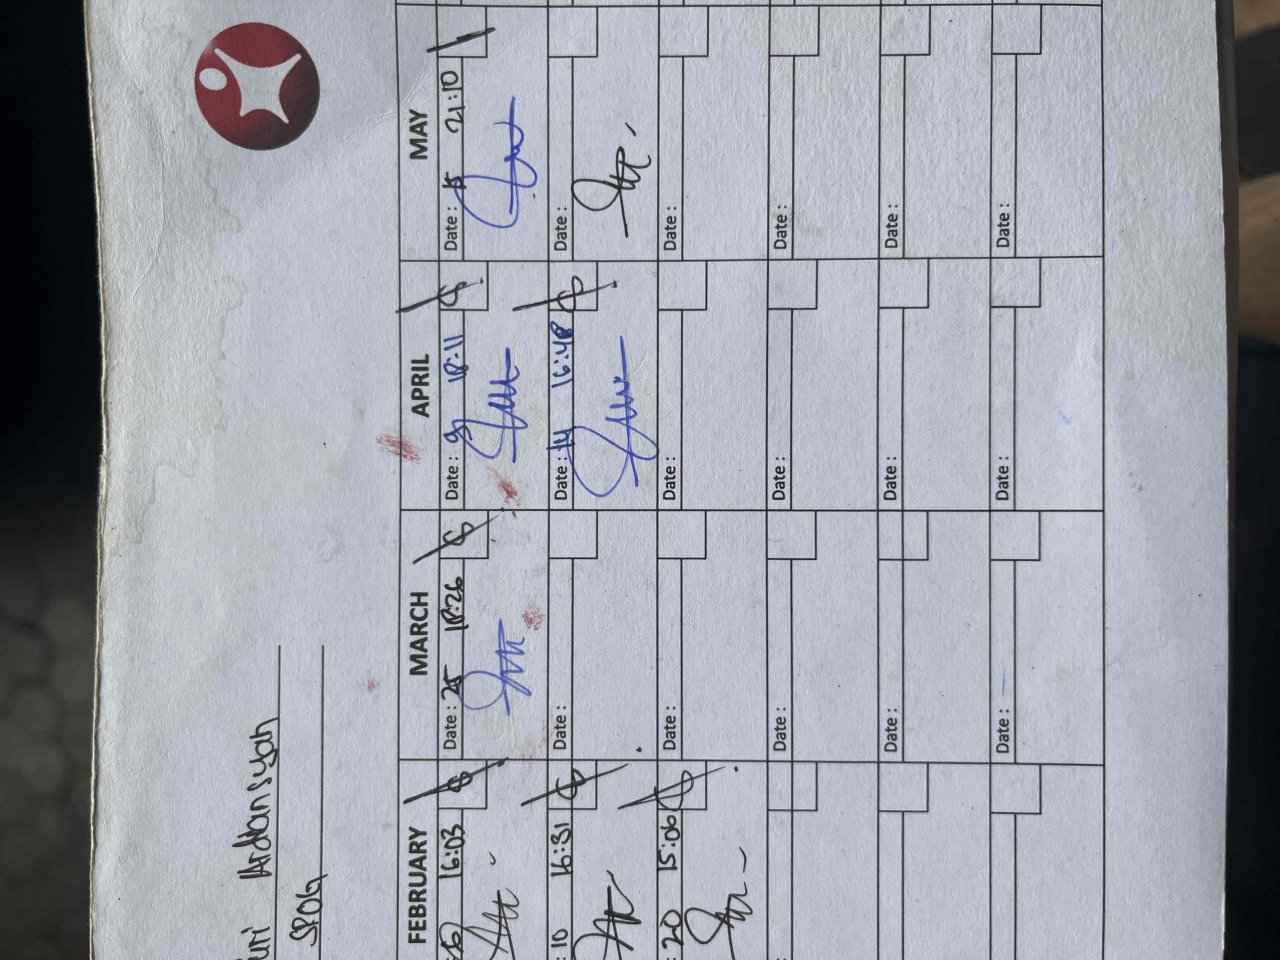 uri Ardiansyah
SPOG
FEBRUARY MARCH APRIL MAY
16:03 Date : 25 18:26 Date : 9 18:11 Date : 15 21:10
: 10 16:31 Date : Date : 14 16:48 Date :
: 20 15:06 Date : Date : Date :
Date : Date : Date :
Date : Date : Date :
Date : Date : Date :